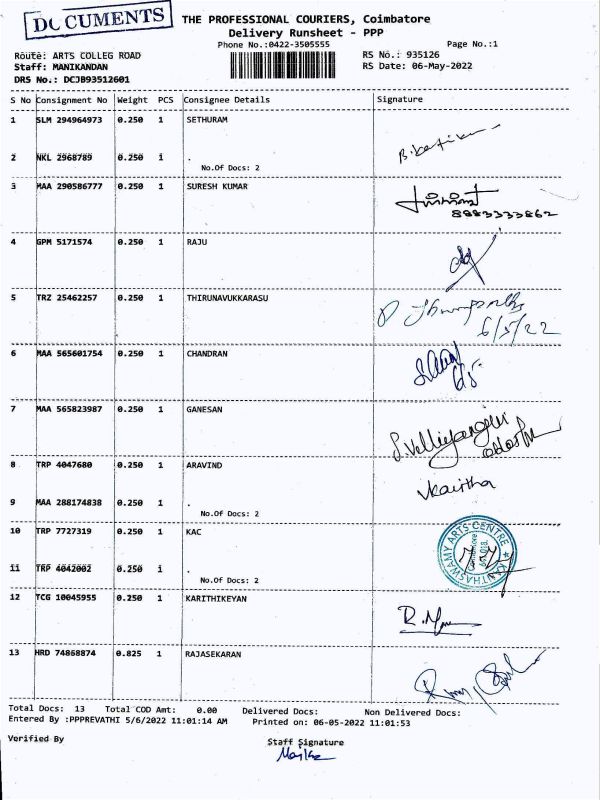 DOCUMENTS
THE PROFESSIONAL COURIERS, Coimbatore
Delivery Runsheet - PPP
Phone No.:0422-3505555 Page No.:1
Route: ARTS COLLEG ROAD RS No.: 935126
Staff: MANIKANDAN RS Date: 06-May-2022
DRS No.: DCJB93512601
S No Consignment No Weight PCS Consignee Details Signature
1 SLM 294964973 0.250 1 SETHURAM
2 NKL 2968789 0.250 1 .
No.Of Docs: 2
3 MAA 290586777 0.250 1 SURESH KUMAR
8883333862
4 GPM 5171574 0.250 1 RAJU
5 TRZ 25462257 0.250 1 THIRUNAVUKKARASU
6/5/22
6 MAA 565601754 0.250 1 CHANDRAN
7 MAA 565823987 0.250 1 GANESAN
8 TRP 4047680 0.250 1 ARAVIND
9 MAA 288174838 0.250 1 .
No.Of Docs: 2
10 TRP 7727319 0.250 1 KAC
KANTHASWAMY ARTS CENTRE
Coimbatore
641 018.
11 TRP 4042002 0.250 1 .
No.Of Docs: 2
12 TCG 10045955 0.250 1 KARITHIKEYAN
13 HRD 74868874 0.825 1 RAJASEKARAN
Total Docs: 13 Total COD Amt: 0.00 Delivered Docs: Non Delivered Docs:
Entered By :PPPREVATHI 5/6/2022 11:01:14 AM Printed on: 06-05-2022 11:01:53
Verified By Staff Signature